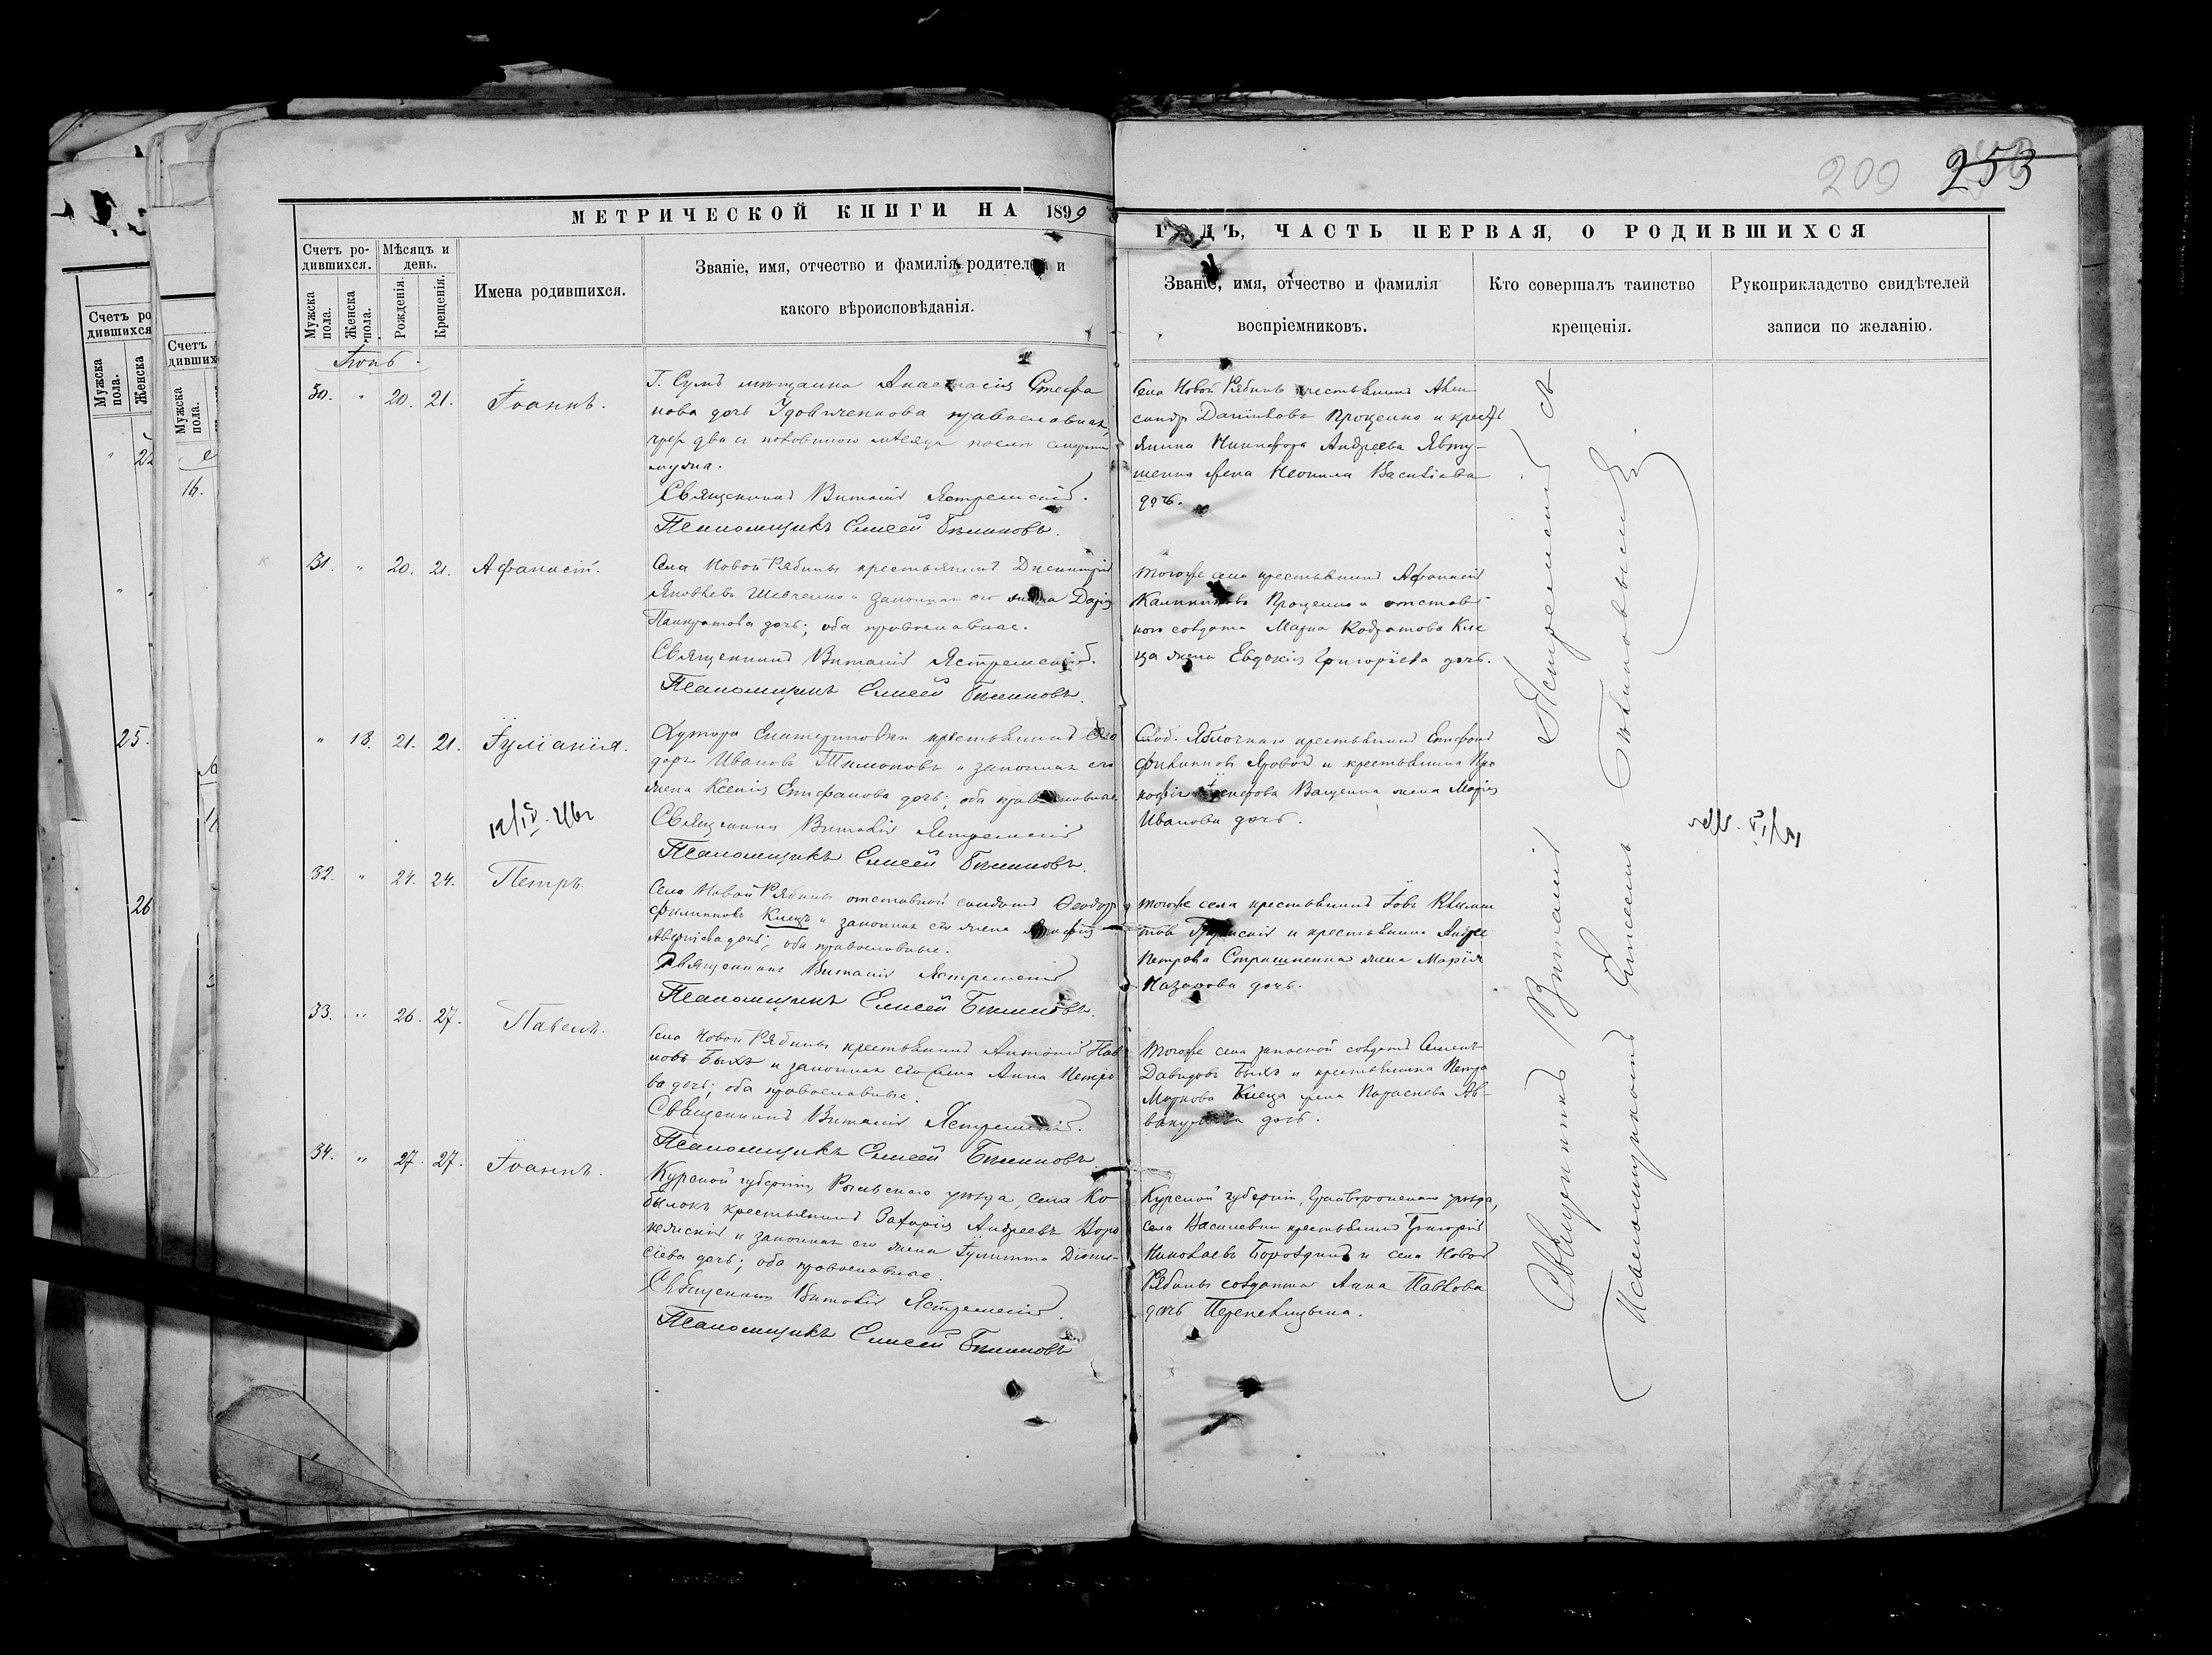 200 253
МЕТРИЧЕСКОЙ КНИГИ НА 1899
ГОДЪ, ЧАСТЬ ПЕРВАЯ, О РОДИВШИХСЯ
Счетъ ро-
дившихся.
Мѣсяцъ и
день.
Мужска
пола.
Женска
пола.
Рожденія.
Крещенія.
Имена родившихся.
Званіе, имя, отчество и фамилія родителей и
какого вѣроисповѣданія.
Званіе, имя, отчество и фамилія
воспріемниковъ.
Кто совершалъ таинство
крещенія.
Рукоприкладство свидѣтелей
записи по желанію.
30. " 20. 21. Іоаннъ.
Г. Сумъ мѣщанка Анастасія Стефа
нова дочь православная,
чрез два съ половиною мѣсяца послѣ смерти
мужа.
Священникъ Виталій Ястремскій.
Псаломщикъ Елисей Бѣлиновъ.
Села Новой Рябины крестьянинъ Алек
сандр Проценко и кресть
янина Никифора Андреева Явту-
шенка жена Неонила Василіева
дочь.
31. " 20. 21. Афанасій.
Села Новой Рябины крестьянинъ Димитрій
Яковлевъ Шевченко и законная его жена Дарія
Панкратова дочь; оба православные.
Священникъ Виталій Ястремскій.
Псаломщикъ Елисей Бѣлиновъ.
тогоже села крестьянинъ Афанасій
Калинниковъ Проценко и отстав
ного солдата Марка Кодратова Кле
ца жена Евдокія Григоріева дочь.
" 18. 21. 21. Іуліанія.
Хутора Екатериновки крестьянинъ Ѳео
доръ Ивановъ Тимоновъ и законная его
жена Ксенія Епифанова дочь; оба православные
Священникъ Виталій Ястремскій
Псаломщикъ Елисей Бѣлиновъ.
Слод. Яблочнаго крестьянинъ Епифанъ
Филипповъ Яровой и крестьянина Про
кофія Ващенка жена Марія
Иванова дочь.
32. " 24. 24. Петръ.
Села Новой Рябины отставной солдатъ Ѳеодоръ
Филипповъ Клецъ и законная его жена
дочь; оба православные.
Священникъ Виталій Ястремскій
Псаломщикъ Елисей Бѣлиновъ.
тогоже села крестьянинъ Іовъ
и крестьянина Андрея
Петрова Страшненка жена Марія
Назарова дочь.
33. " 26. 27. Павелъ.
Села Новой Рябины крестьянинъ Антоній Пав
ловъ Быхъ и законная его жена Анна Петро
ва дочь; оба православные.
Священникъ Виталій Ястремскій.
Псаломщикъ Елисей Бѣлиновъ
тогоже села запасной солдатъ Семенъ
Давидовъ Быхъ и крестьянина Петра
Маркова Клеца жена Параскева Ав-
дочь.
34. " 27. 27. Іоаннъ.
Курской губерніи, Рыльскаго уѣзда, села Ко
былокъ крестьянинъ Захарія Андреевъ
и законная его жена Іулитта Діони-
сіева дочь; оба православные.
Священникъ Виталій Ястремскій.
Псаломщикъ Елисей Бѣлиновъ
Курской губерніи, Грайворонскаго уѣзда,
села крестьянинъ Григорій
Николаевъ Бороздинъ и села Новой
Рябины солдатка Анна Павлова
дочь Перепелицына.
Священникъ Виталій Ястремскій съ
Псаломщикомъ Елисеемъ Бѣлиновымъ.
Счетъ ро
дившихся
Мужска
пола.
Женска
25.
26
Счетъ
дивших
Мужска
пола.
16.